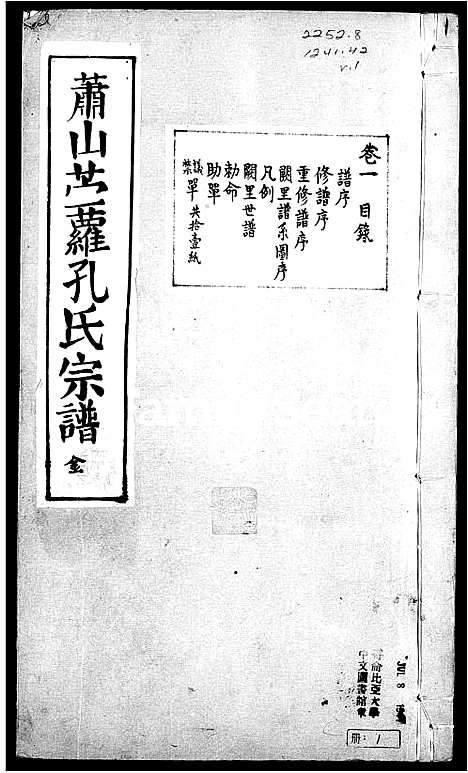 2252.8
1241.42
v.1
卷一 目錄
譜序
修譜序
重修譜序
闕里譜系圖序
凡例
闕里世譜
勅命
助單
議禁單 共拾壹紙
蕭山苎蘿孔氏宗譜 金
倫比亞大學
中文圖書館藏
JUL 8
册: 1